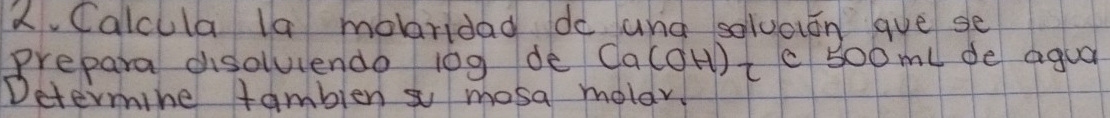 2. Calcula la molaridad de una solución que se
prepara disolviendo 10g de Ca(OH)₂ e 500mL de agua
Determine tambien su masa molar.